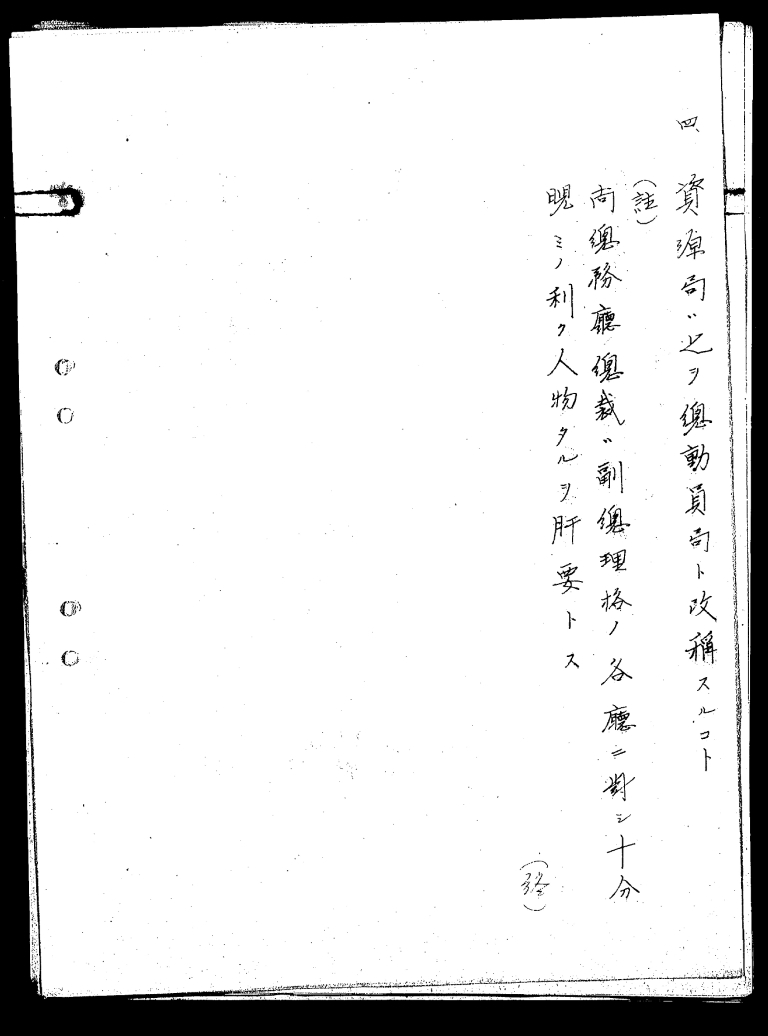 四、資源局ハ之ヲ總動員局ト改稱スルコト
(註)
尚總務廳總裁ハ副總理格ノ各廳ニ對シ十分
睨ミノ利ク人物タルヲ肝要トス
(終)